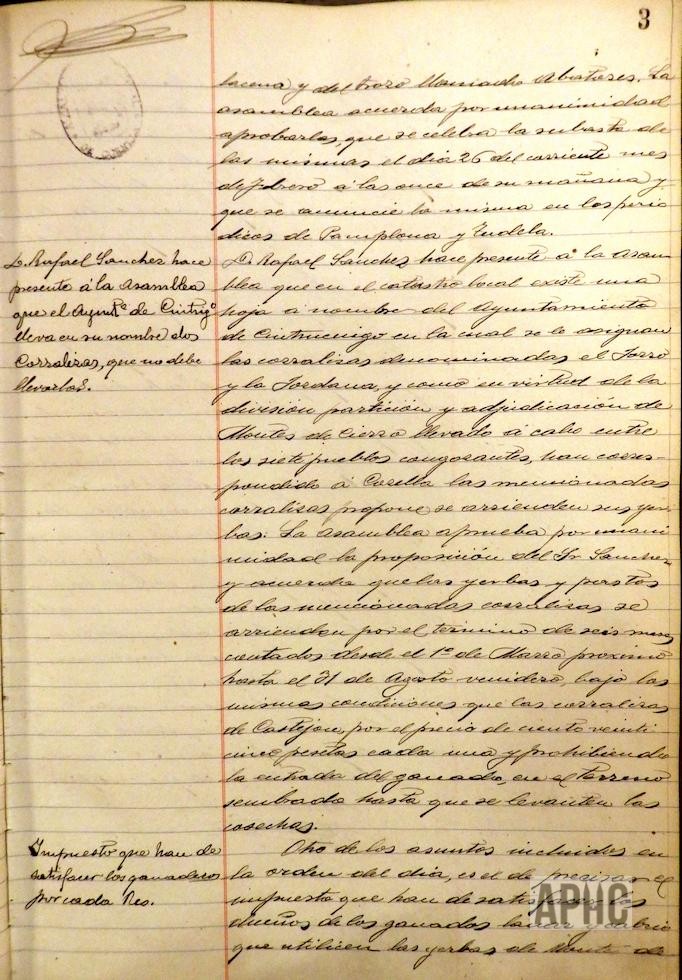 3
lacena y del trozo Maniadro Abatores. La
asamblea acuerda por unanimidad
aprobarlas, que se celebra la subasta de
las mismas el dia 26 del corriente mes
de Febrero á las once de su mañana y
que se anuncie la misma en los perio
dicos de Pamplona y Tudela.
D. Rafael Sanchez hace
presente á la Asamblea
que el Ayuntº de Cintrigº
lleva en su nombre dos
Corralizas, que no debe
llevarlas.
D. Rafael Sanchez hace presente á la asam
blea que en el catastro local existe una
hoja á nombre del Ayuntamiento
de Cintruenigo en la cual se le asignan
las corralizas denominadas el Torro
y la Jordana, y como en virtud de la
division particion y adjudicación de
Montes de Cierzo llevado á cabo entre
los siete pueblos congozantes, han corres-
pondido á Corella las mencionadas
corralizas propone se arrienden sus yer
bas. La asamblea aprueba por unani
midad la proposición del Sr Sanchez
y acuerda que las yerbas y pastos
de las mencionadas corralizas se
arriendan por el termino de seis meses
contados desde el 1º de Marzo proximo
hasta el 31 de Agosto venidero, bajo las
mismas condiciones que las corralizas
de Castejon, por el precio de ciento veinti
cinco pesetas cada una y prohibiendo
la entrada del ganado, en el terreno
sembrado hasta que se levanten las
cosechas.
Impuesto que han de
satisfacer los ganaderos
por cada Res.
Otro de los asuntos incluidos en
la orden del dia, es el de precisar el
impuesto que han de satisfacer los
dueños de los ganados lanar y cabrio
que utilicen las yerbas de Monte de
APHC